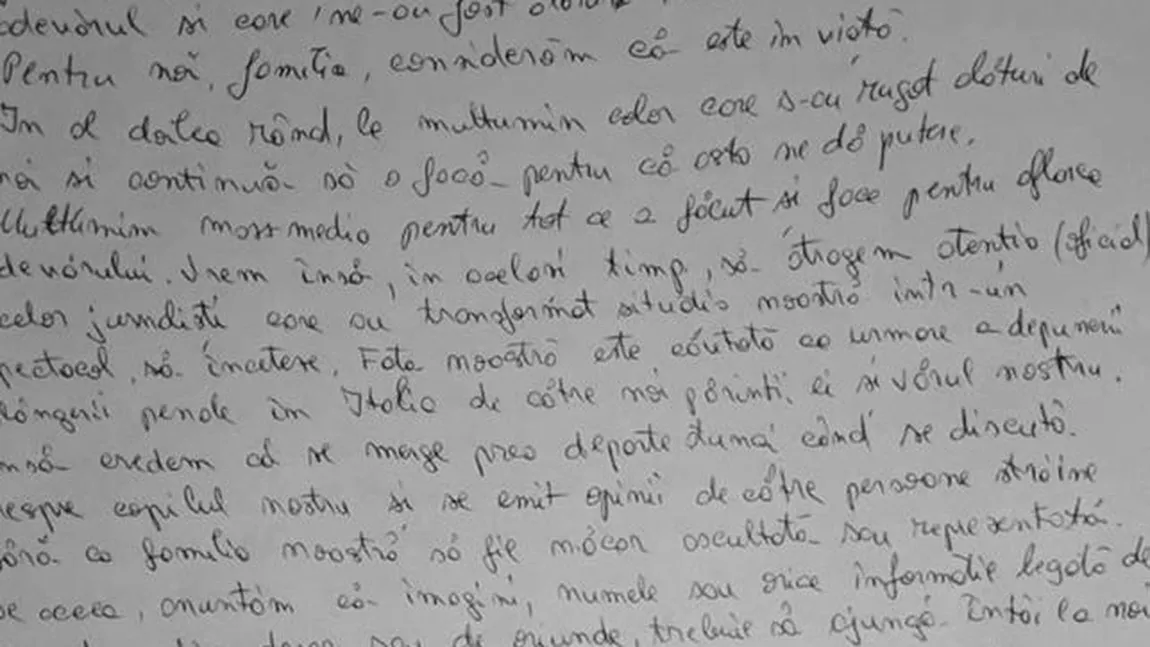 adevărul și care ne-au fost alături
Pentru noi, familia, considerăm că este în viață.
În al doilea rând, le mulțumim celor care s-au rugat alături de
noi și continuă să o facă pentru că asta ne dă putere.
Mulțumim mass media pentru tot ce a făcut și face pentru aflarea
adevărului. Vrem însă, în același timp, să atragem atenția (oficial)
celor jurnaliști care au transformat situația noastră într-un
spectacol, să înceteze. Fata noastră este căutată ca urmare a depunerii
plângerii penale în Italia de către noi părinții ei și vărul nostru.
Însă credem că se merge prea departe numai când se discută
despre copilul nostru și se emit opinii de către persoane străine
fără ca familia noastră să fie măcar ascultată sau reprezentată.
De aceea, anunțăm că imagini, numele sau orice informație legată de
sau de oriunde, trebuie să ajungă întâi la noi